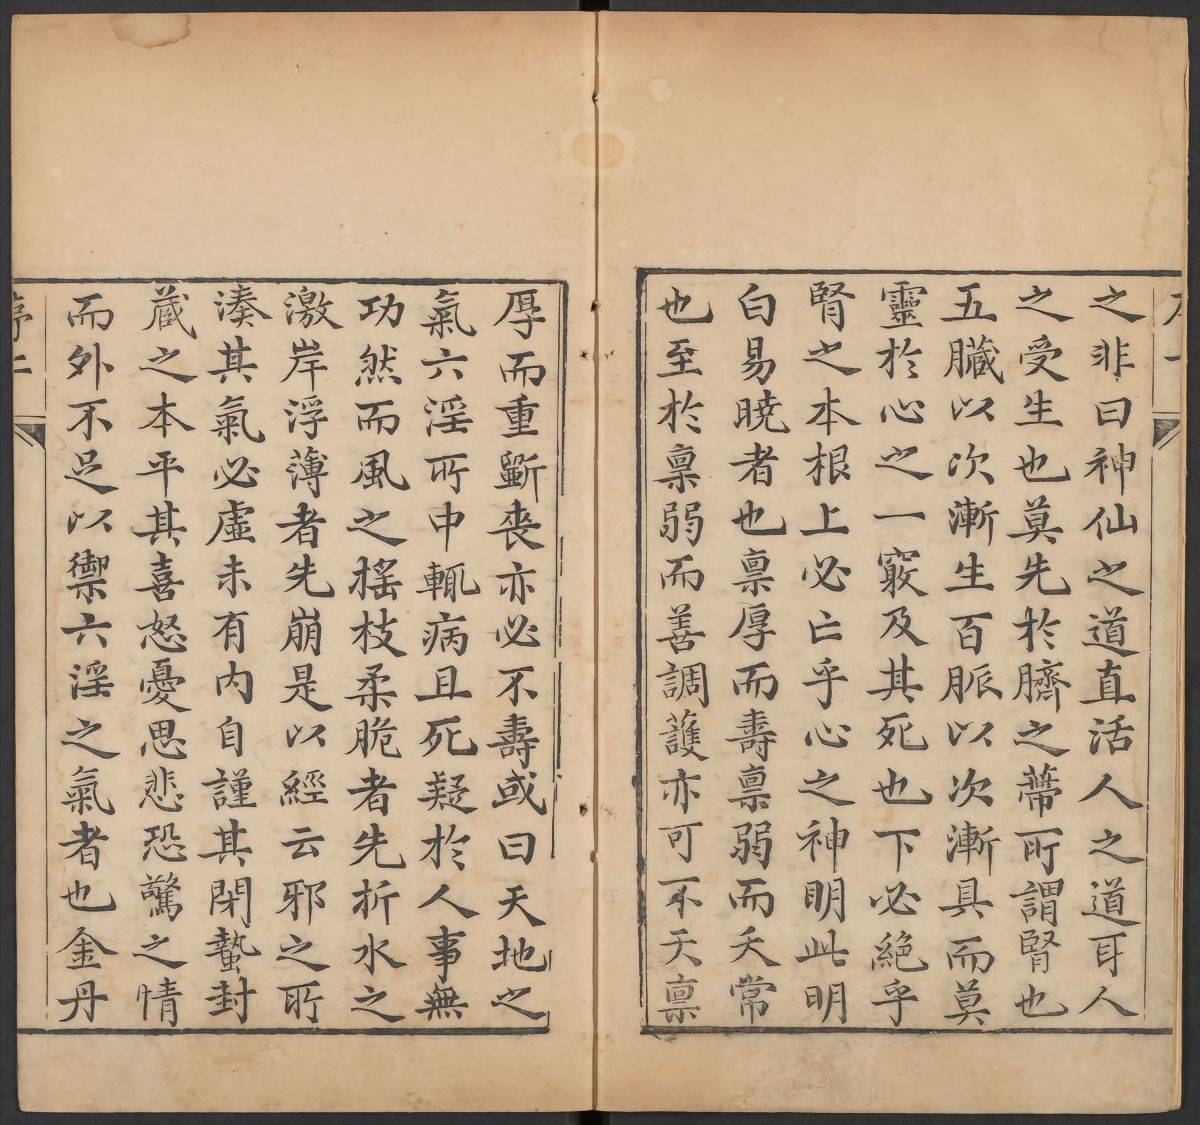 之非曰神仙之道直活人之道耳人
之受生也莫先於臍之蔕所謂腎也
五臟以次漸生百脈以次漸具而莫
靈於心之一竅及其死也下必絕乎
腎之本根上必亡乎心之神明此明
白易曉者也禀厚而壽禀弱而夭常
也至於禀弱而善調護亦可不夭禀
厚而重斵喪亦必不壽或曰天地之
氣六淫所中輒病且死疑於人事無
功然而風之搖枝柔脆者先折水之
激岸浮薄者先崩是以經云邪之所
湊其氣必虛未有內自謹其閉蟄封
蔵之本平其喜怒憂思悲恐驚之情
而外不足以禦六淫之氣者也金丹
序二